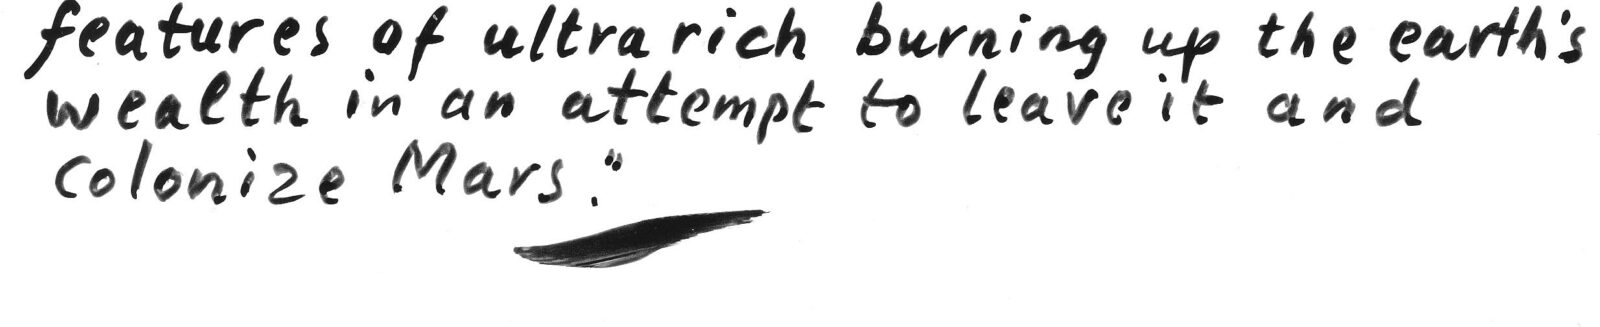 features of ultra rich burning up the earth's
wealth in an attempt to leave it and
colonize Mars."